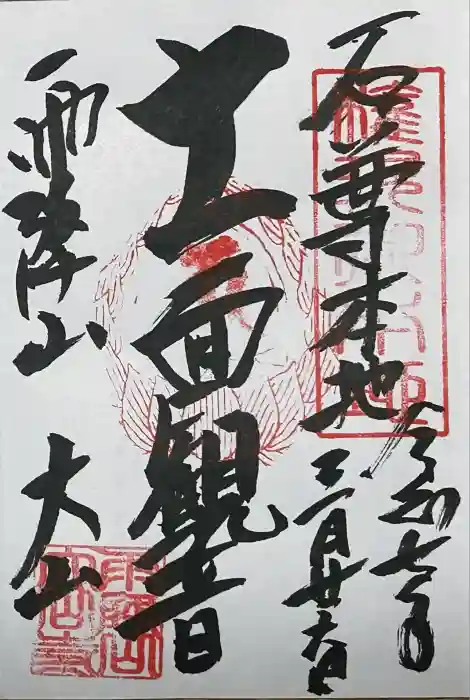 石尊本地
令和七年
月廿六日
十一面観音
雨降山
大山